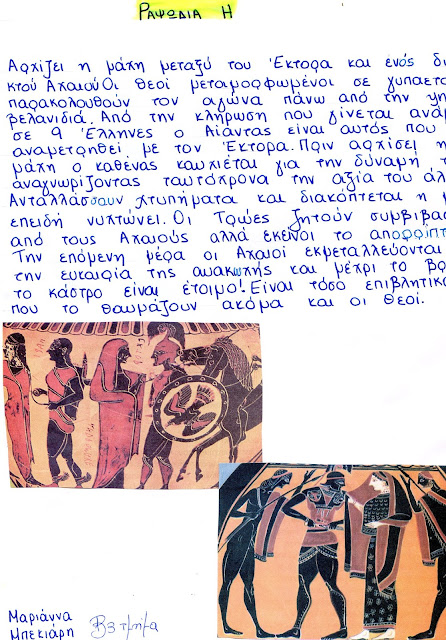 Ραψωδία Η
Αρχίζει η μάχη μεταξύ του Έκτορα και ενός δι
κτού Αχαιού. Οι Θεοί μεταμορφωμένοι σε γυπαετο
παρακολουθούν τον αγώνα πάνω από την ψη
βελανιδιά. Από την κλήρωση που γίνεται ανάμ
σε 9 Έλληνες ο Αίαντας είναι αυτός που
αναμετρηθεί με τον Έκτορα. Πριν αρχίσει η
μάχη ο καθένας καυχιέται για την δύναμή
αναγνωρίζοντας ταυτόχρονα την αξία του άλ
Ανταλλάσσουν χτυπήματα και διακόπτεται η μ
επειδή νυχτώνει. Οι Τρώες ζητούν συμβιβασ
από τους Αχαιούς αλλά εκείνοι το απορρίπτ
Την επόμενη μέρα οι Αχαιοί εκμεταλλεύονται
την ευκαιρία της ανακωχής και μέχρι το βρ
το κάστρο είναι έτοιμο! Είναι τόσο επιβλητικό
που το θαυμάζουν ακόμα και οι Θεοί.
Μαριάννα
Μπεκιάρη Β3 τμήμα